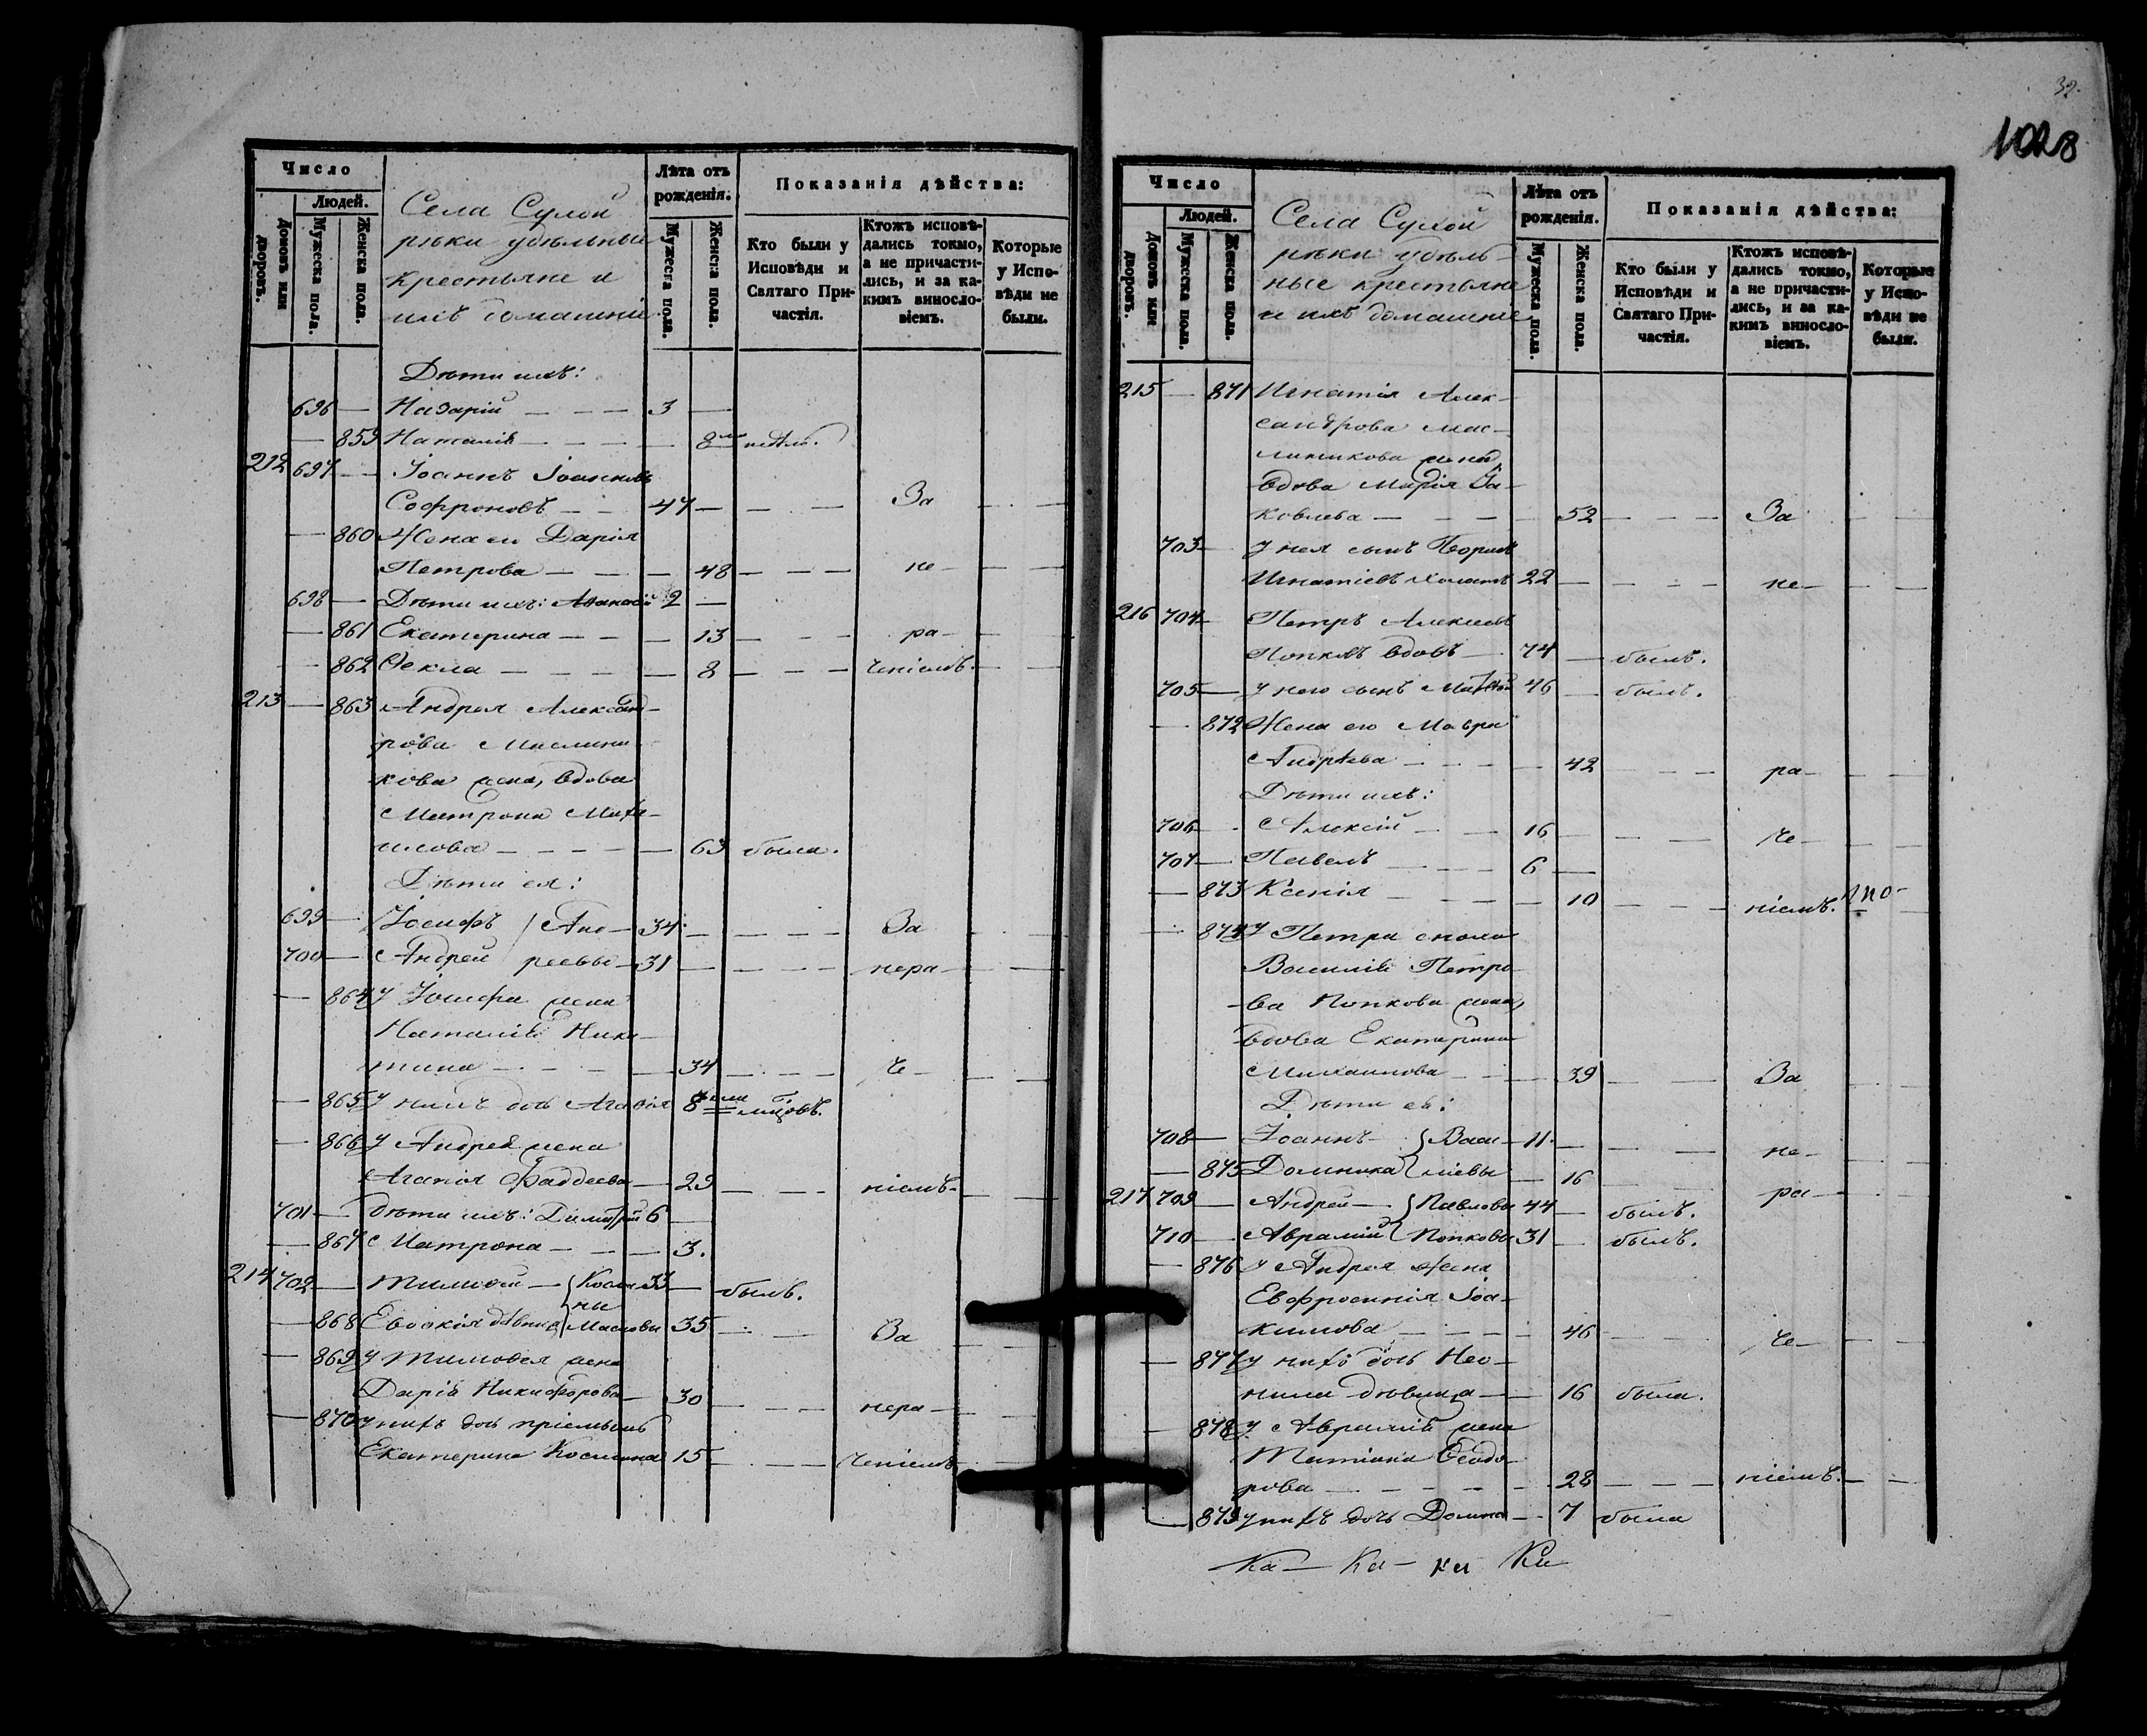 Число
Людей.
Домовъ или дворовъ.
Мужеска пола.
Женска пола.
Села Сухой
рѣки удѣльные
крестьяне и
ихъ домашніе
Лѣта отъ
рожденія.
Мужеска пола.
Женска пола.
Показанія дѣйства:
Кто были у
Исповѣди и
Святаго При-
частія.
Ктожъ исповѣ-
дались токмо,
а не причасти-
лись, и за ка-
кимъ винosло-
віемъ.
Которые
у Испо-
вѣди не
были.
Дѣти ихъ:
696 — Назарій — — — 3 —
— 859 Наталія — — — — 8 недѣл.
212 697 — Іоаннъ Іоанновъ
Софроновъ — — 47 — — — За — —
— 860 Жена ею Дарія
Петрова — — — — 48 — — — не — — —
698 — Дѣти ихъ: Аѳанасій 2 —
— 861 Екатерина — — — 13 — — — ра — — —
— 862 Ѳекла — — — — — 8 — — — ченіемъ. — —
213 — 863 Андрея Алексан-
рова Маслини-
кова жена, вдова
Матрона Миха-
илова — — — — — 63 была.
Дѣти ея:
699 — Іосифъ Анд- 34 — — — — За
700 — Андрей реевы 31 — — — — нера — — —
— 864 У Іосифа жена
Наталія Ники-
тина — — — — 34 — — — че — — —
— 865 У нихъ дочь Агафія 8 мцовъ.
— 866 У Андрея жена
Агапія Фаддеева — 29 — — — ніемъ. — —
701 — Дѣти ихъ: Димитрій 6 —
— 867 Матрона — — — 3.
214 702 — Тимоѳей — Косми- 33 — былъ.
ны
— 868 Евдокія дѣвица Масловы 35 — — — За — —
— 869 У Тимоѳея жена
Дарія Никифорова — 30 — — — нера — — —
— 870 У нихъ дочь пріемышъ
Екатерина Космина 15 — — — ченіемъ — —
32.
1028
Число
Людей.
Домовъ или дворовъ.
Мужеска пола.
Женска пола.
Села Сухой
рѣки удѣль-
ные крестьяне
и ихъ домашніе
Лѣта отъ
рожденія.
Мужеска пола.
Женска пола.
Показанія дѣйства:
Кто были у
Исповѣди и
Святаго При-
частія.
Ктожъ исповѣ-
дались токмо,
а не причасти-
лись, и за ка-
кимъ винosло-
віемъ.
Которые
у Испо-
вѣди не
были.
215 — 871 Игнатія Алек-
сандрова Мас-
линикова жена,
вдова Марія Іа-
ковлева — — — — 52 — — — За — —
703 — У нея сынъ
Игнатіевъ холостъ 22 — — — — не — — —
216 704 — Петръ Алексіевъ
Попковъ вдовъ — 74 — былъ.
705 — У него сынъ Матѳей 46 — былъ.
— 872 Жена его Мавра
Андрѣева — — — — 42 — — — ра — — —
Дѣти ихъ:
706 — Алексій — — 16 — — — че — — —
707 — Павелъ — — — 6 —
— 873 Ксенія — — — — 10 — — — ніемъ. — —
— 874 У Петра сноха
Василія Петро-
ва Попкова жена,
вдова Екатерина
Михаилова — — — 39 — — За — —
Дѣти ея:
708 — Іоаннъ — Васи- 11 — — — — не — —
— 875 Домника ліевы — 16 — — — ра — —
217 709 — Андрей — Павловы 44 — былъ.
710 — Аврамій Попковы 31 — былъ.
— 876 У Андрея жена
Евфросинія Іоа-
кимова — — — — 46 — — че — — —
— 877 У нихъ дочь Нео-
нила дѣвица — — 16 была.
— 878 У Аврамія жена
Татіана Ѳеодо-
рова — — — — — 28 — — — ніемъ. — —
— 879 У нихъ дочь Домна — 7 была
Ка — Ка — ка Ка